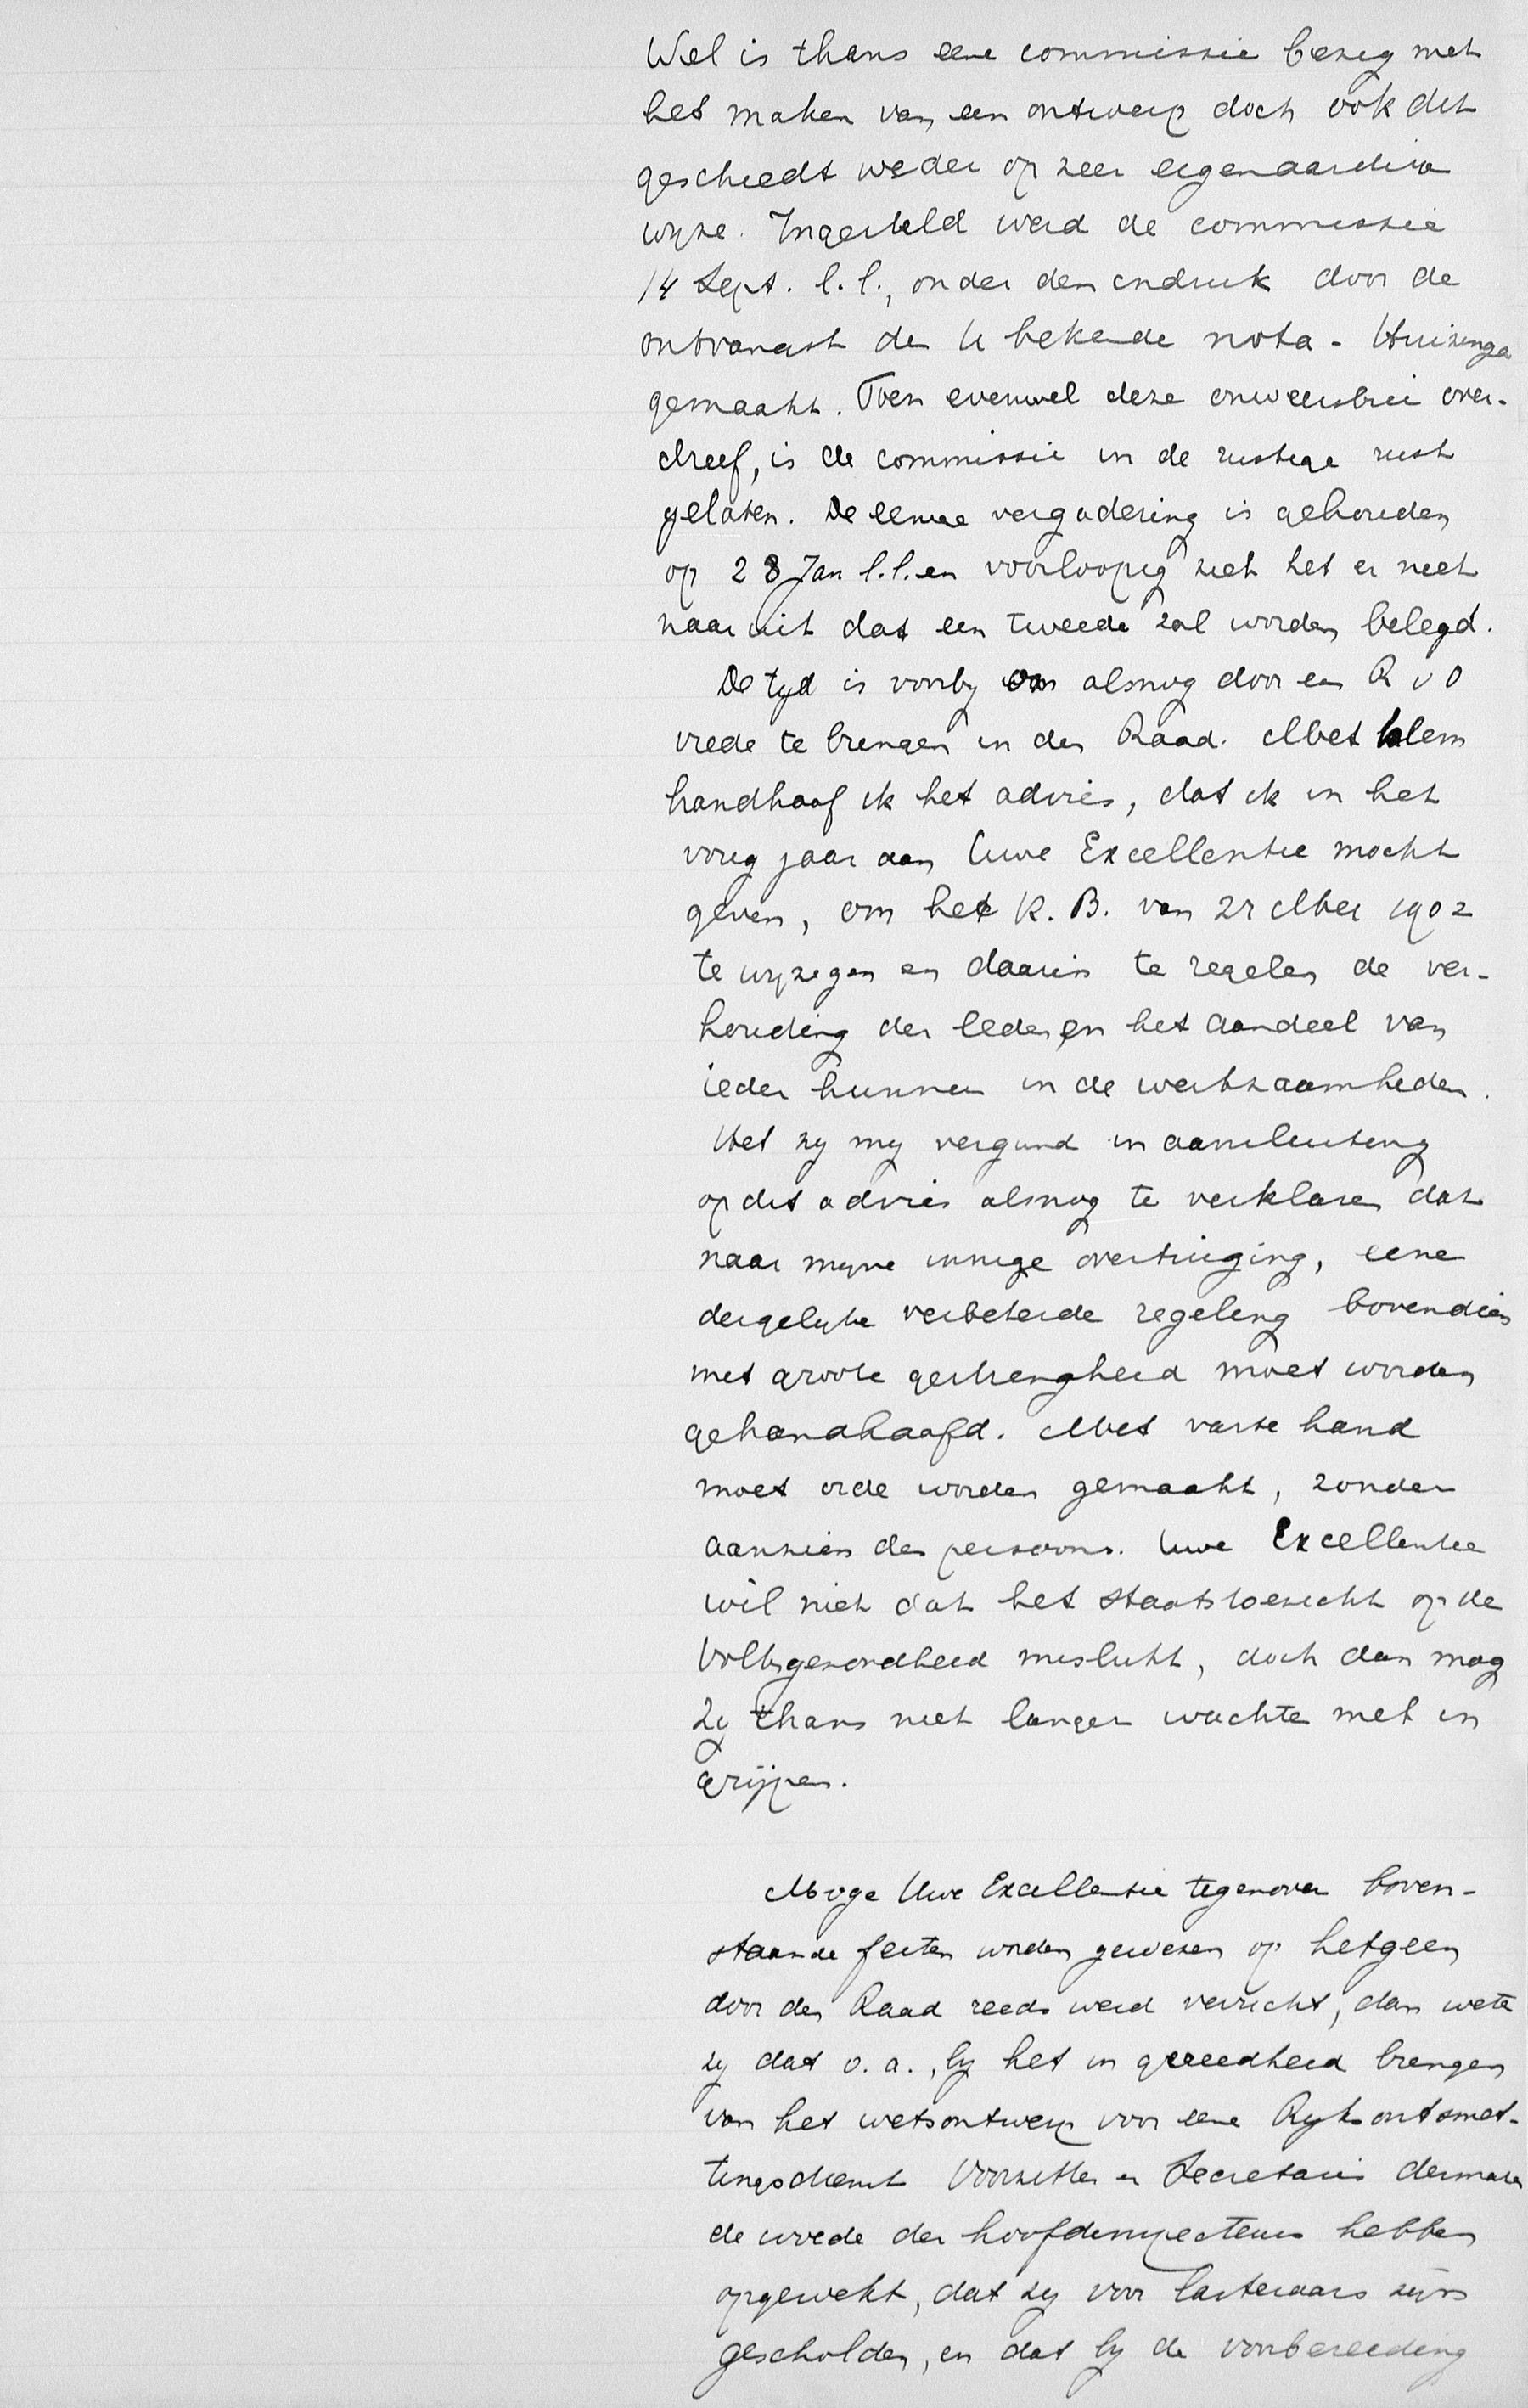 Wel is thans eene commissie bezig met
het maken van een ontwerp doch ook dit
geschiedt weder op zeer eigenaardige
wijze. Ingesteld werd de commissie
14 Sept. l.l., onder den indruk door de
ontvangst der U bekende nota-Huizenga
gemaakt. Toen evenwel deze onweersbui over-
dreef, is de commissie in de rustige rust
gelaten. De eenige vergadering is gehouden
op 28 Jan l.l. en voorloopig ziet het er niet
naar uit dat een tweede zal worden belegd.
De tijd is voorbij om alsnog door een R v O
vrede te brengen in den Raad. Met klem
handhaaf ik het advies, dat ik in het
vorig jaar aan Uwe Excellentie mocht
geven, om het K.B. van 27 Mei 1902
te wijzigen en daarin te regelen de ver-
houding der leden en het aandeel van
ieder hunner in de werkzaamheden.
Het zij mij vergund in aansluiting
op dit advies alsnog te verklaren dat
naar mijne innige overtuiging, eene
dergelijke verbeterde regeling bovendien
met groote gestrengheid moet worden
gehandhaafd. Met vaste hand
moet orde worden gemaakt, zonder
aanzien des persoons. Uwe Excellentie
wil niet dat het staatstoezicht op de
Volksgezondheid mislukt, doch dan mag
Zij thans niet langer wachten met in
grijpen.
Moge Uwe Excellentie tegenover boven-
staande feiten worden gewezen op hetgeen
door den Raad reeds werd verricht, dan wete
zij dat o.a., bij het in gereedheid brengen
van het wetsontwerp voor eene Rijksontsmet-
tingsdienst Voorzitter en Secretaris dermate
de woede der hoofdinspecteurs hebben
opgewekt, dat zij voor lasteraars zijn
gescholden, en dat bij de voorbereiding